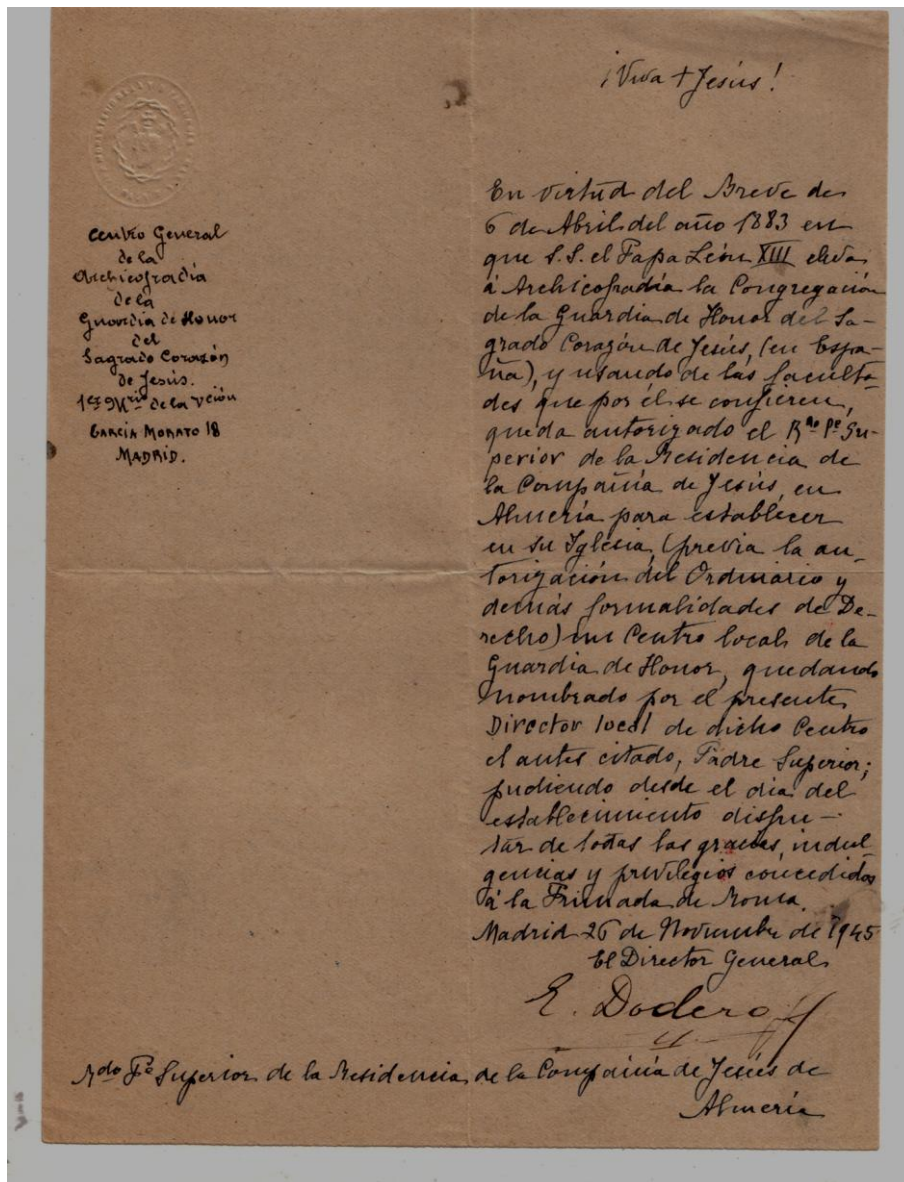 ¡Viva + Jesús!
Centro General
de la
Archicofradía
de la
Guardia de Honor
del
Sagrado Corazón
de Jesús.
1er Mrio de la Vción
GARCÍA MORATO 18
MADRID.
En virtud del Breve de
6 de Abril del año 1883 en
que S.S. el Papa León XIII eleva
á Archicofradía la Congregación
de la Guardia de Honor del Sa-
grado Corazón de Jesús, (en Espa-
ña), y usando de las faculta-
des que por él se confieren,
queda autorizado el Rdo Pe Su-
perior de la Residencia de
la Compañía de Jesús, en
Almería para establecer
en su Iglesia, (previa la au-
torización del Ordinario y
demás formalidades de De-
recho) un Centro local de la
Guardia de Honor, quedando
nombrado por el presente
Director local de dicho Centro
el antes citado, Padre Superior;
pudiendo desde el día del
establecimiento disfru-
tar de todas las gracias, indul-
gencias y privilegios concedidos
á la Primada de Roma.
Madrid 26 de Noviembre de 1945
El Director General
E. Dodero
Rdo Pe Superior de la Residencia de la Compañía de Jesús de
Almería